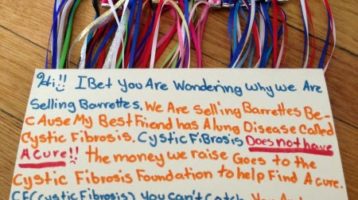 Hi!! I Bet You Are Wondering Why We Are
Selling Barrettes. We Are Selling Barrettes Be-
cAuse My Best Friend has A lung Disease Called
Cystic Fibrosis. Cystic FiBrosis Does not have
A cure!! the money we raise Goes to the
Cystic Fibrosis Foundation to help Find A cure.
CF(Cystic Fibrosis) You can't catch